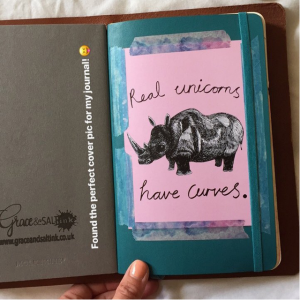 Found the perfect cover pic for my journal! 😊
Real unicorns
have curves.
Grace&SALT
www.graceandsaltink.co.uk